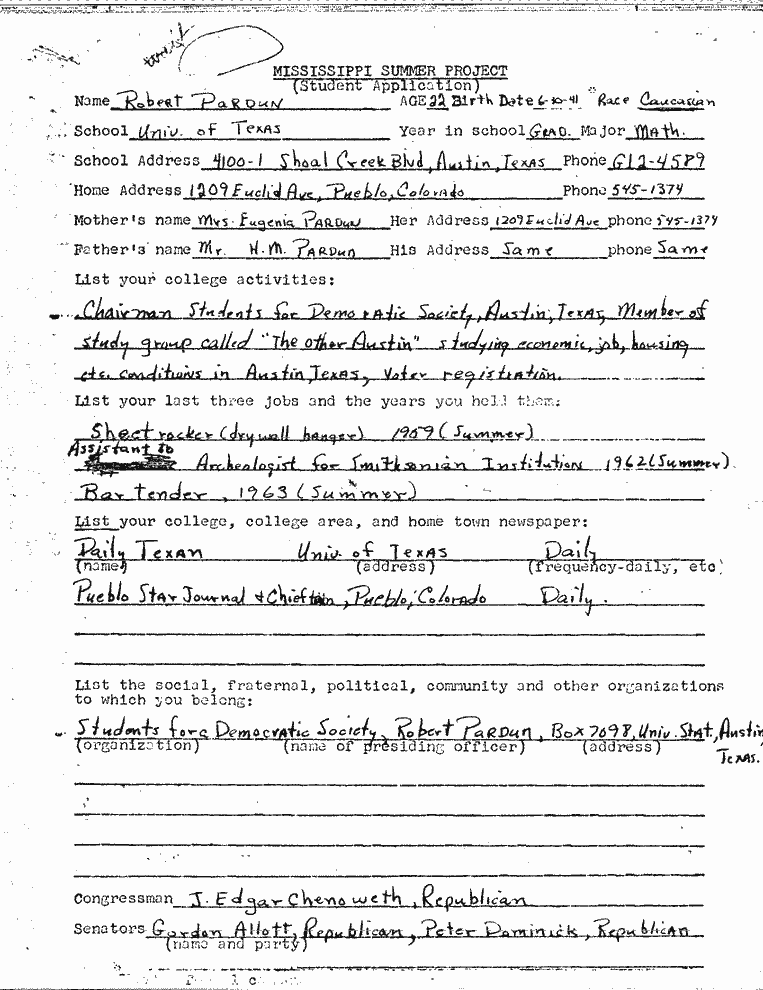 MISSISSIPPI SUMMER PROJECT
(Student Application)
Name Robert Pardun AGE 22 Birth Date 6-10-41 Race Caucasian
School Univ. of Texas Year in school Grad. Major Math.
School Address 4100-1 Shoal Creek Blvd, Austin, Texas Phone GL2-4589
Home Address 1209 Euclid Ave, Pueblo, Colorado Phone 545-1374
Mother's name Mrs. Eugenia Pardun Her Address 1209 Euclid Ave phone 545-1374
Father's name Mr. H.M. Pardun His Address Same phone Same
List your college activities:
Chairman Students for Democratic Society, Austin, Texas, Member of
study group called "The other Austin" studying economic, job, housing
etc. conditions in Austin, Texas, Voter registration.
List your last three jobs and the years you held them:
Sheetrocker (dry wall hanger) 1959 (Summer)
Assistant to
Archeologist for Smithsonian Institution 1962 (Summer)
Bartender, 1963 (Summer)
List your college, college area, and home town newspaper:
Daily Texan Univ. of Texas Daily
(name) (address) (frequency-daily, etc)
Pueblo Star Journal & Chieftain, Pueblo, Colorado Daily.
List the social, fraternal, political, community and other organizations
to which you belong:
Students for a Democratic Society, Robert Pardun, Box 7098, Univ. Stat., Austin
(organization) (name of presiding officer) (address)
Texas.
Congressman J. Edgar Chenoweth, Republican
Senators Gordon Allott, Republican, Peter Dominick, Republican
(name and party)